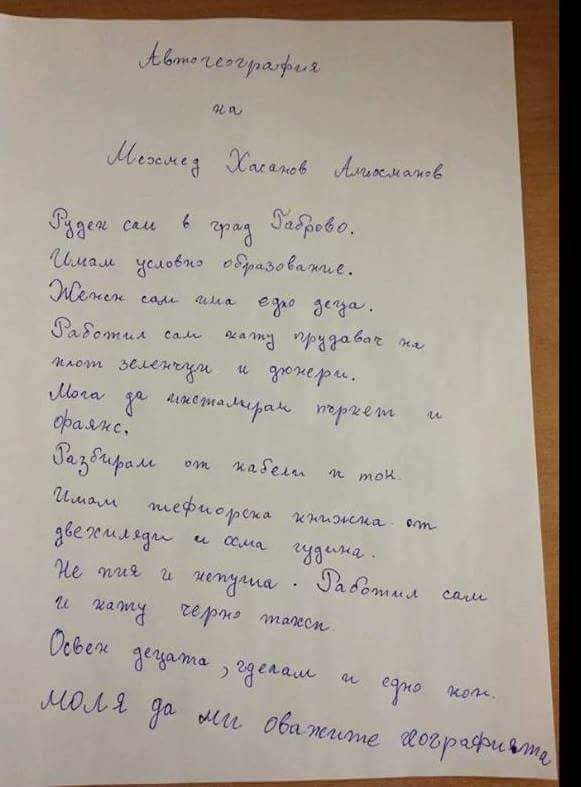 Автогеография
на
Мехмед Хасанов Алихманов
Руден сам в град Габрово.
Имам условно образование.
Женен сам има едно деца.
Работил сам кату прудавач на
плот зеленчуци и дюнери.
Мога да инсталирам пъркет и
фаянс.
Разбирам от кабели и ток.
Имам шефиорска книжка от
двехиляди и осма гудина.
Не пия и непуша. Работил сам
и кату черно такси
Освен децата, гделам и едно кон.
МОЛЯ да ми оважите хографията